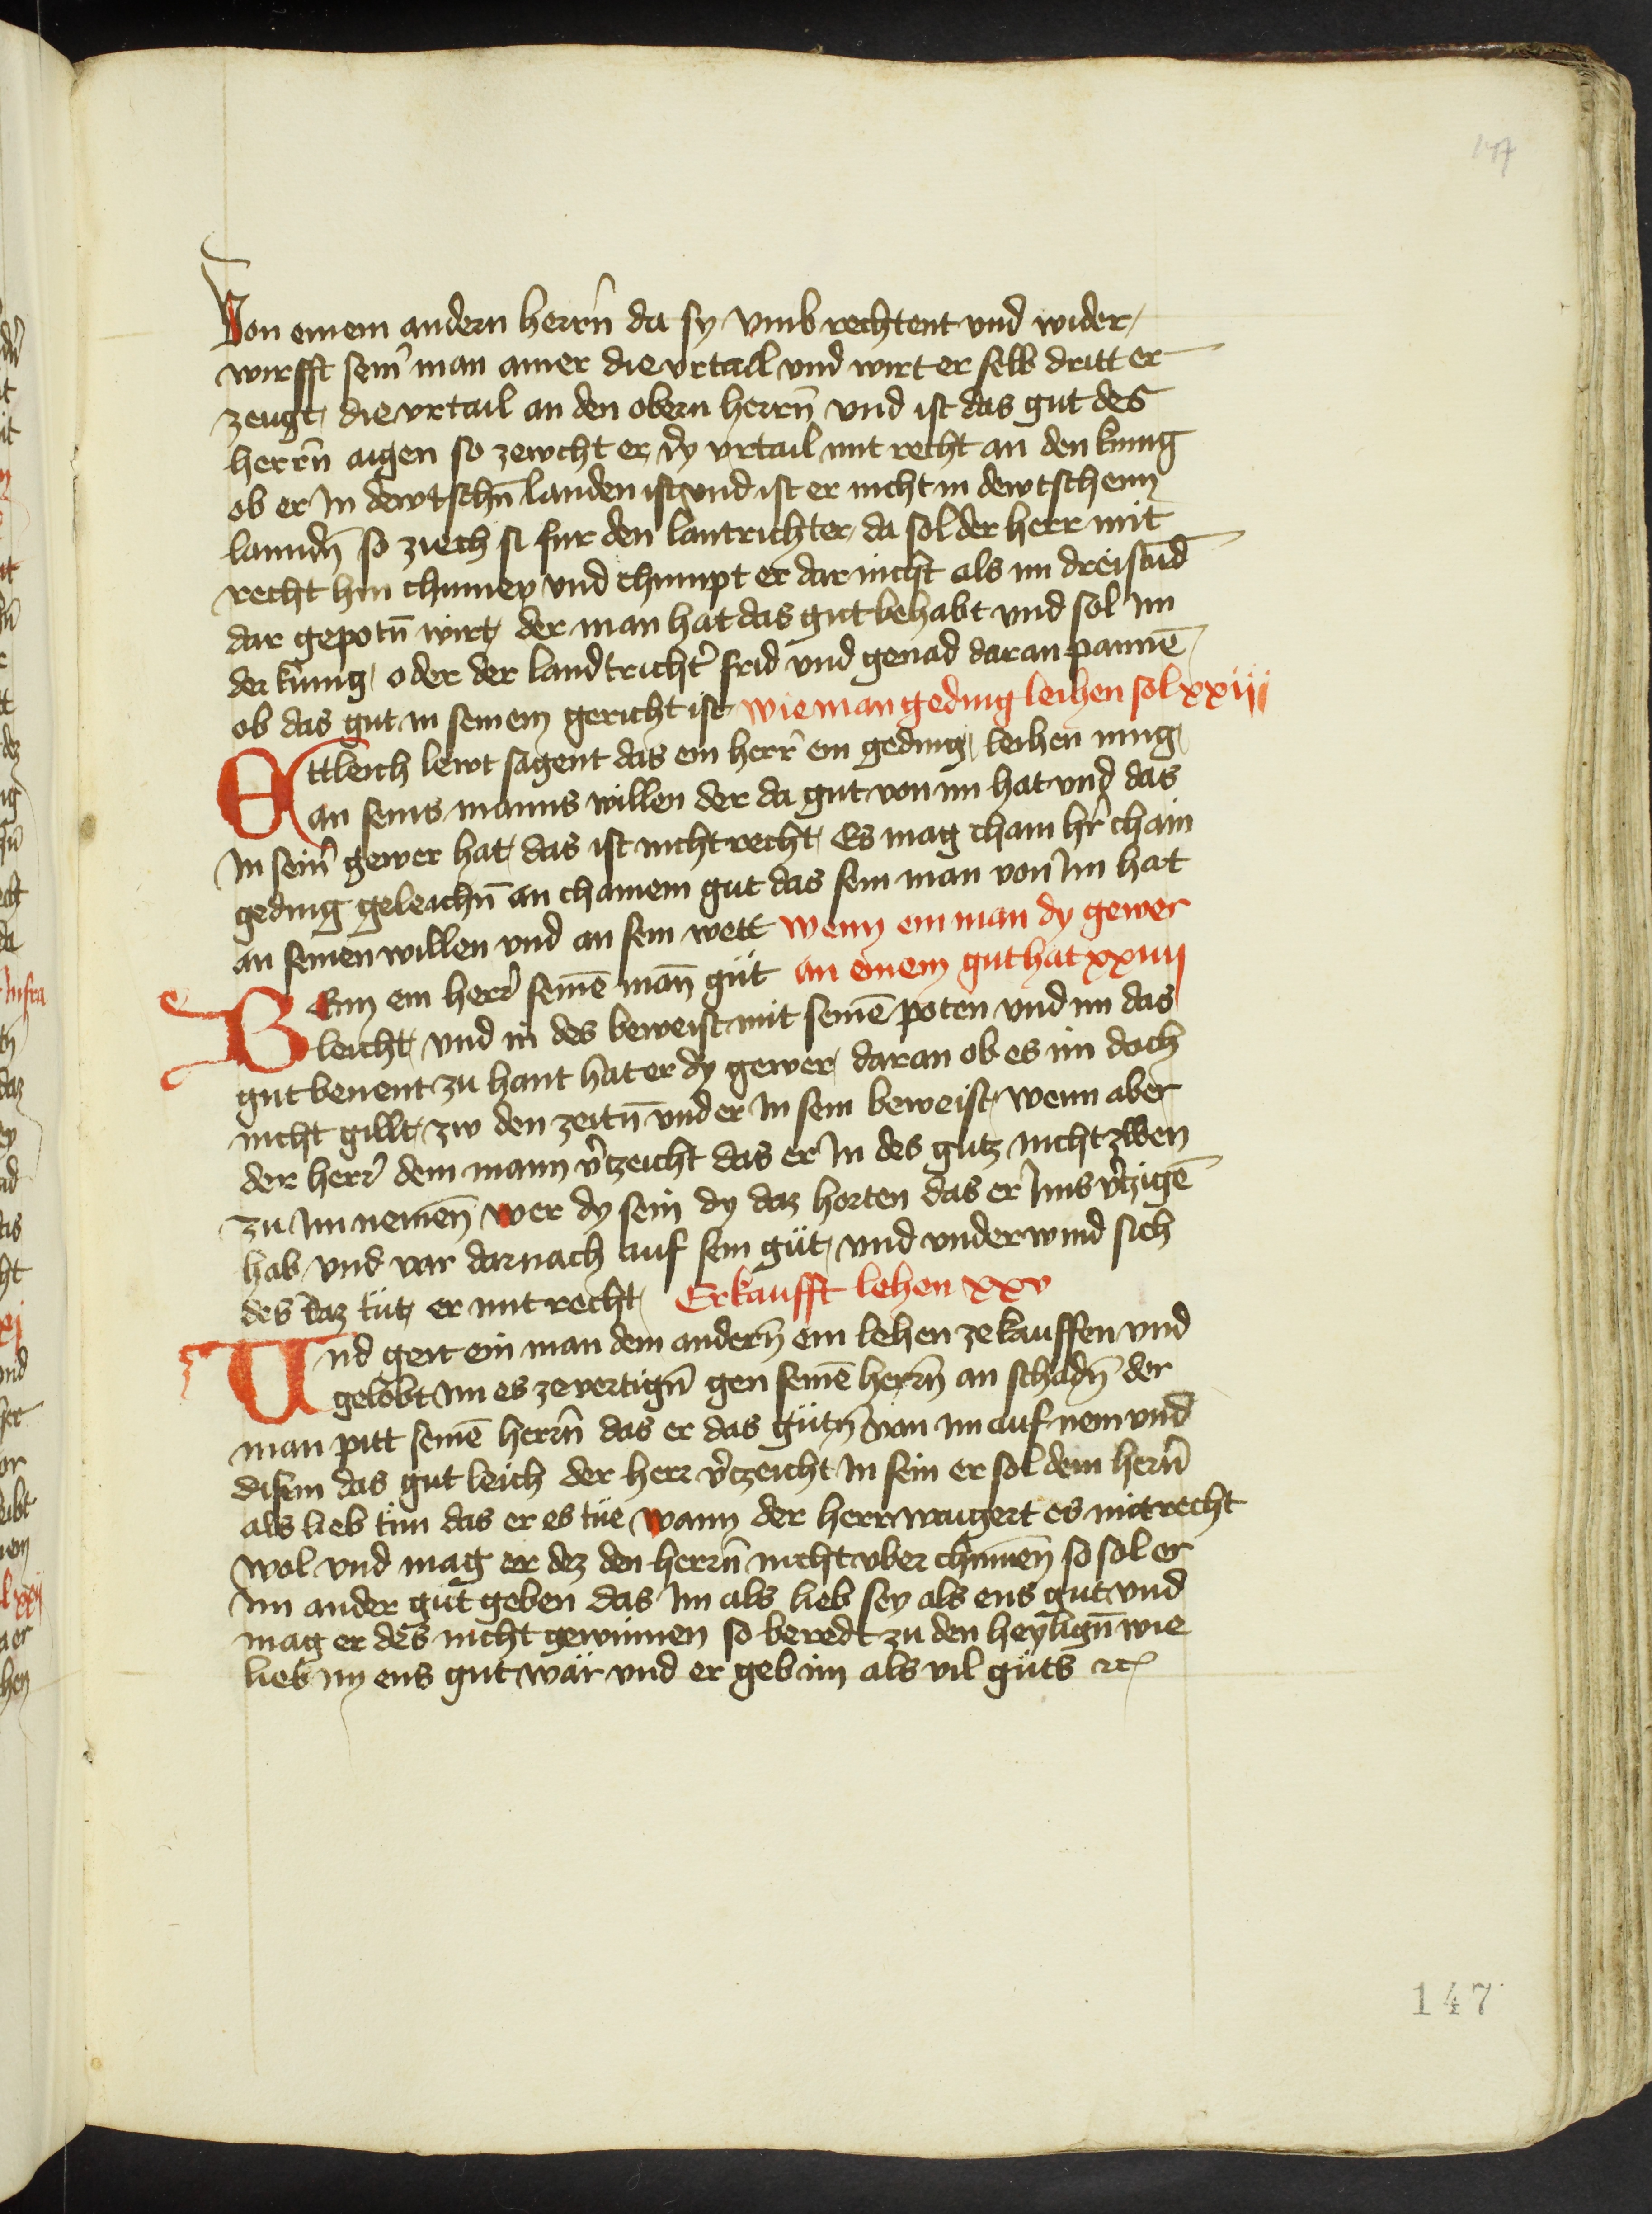 147
Von einem andern herrn̄ da sy vmb rechtent vnd wider
wirfft sein̄ man ainer die vrtail vnd wirt er selb dritt er
zeugt die vrtail an den obern herrn̄ vnd ist das gut des
herrn̄ aigen so zewcht er dy vrtail mit recht an den kunig
ob er In dewtschn̄ landen ist vnd ist er nicht in dewtschenn
lanndn̄ so ziech si fur den lantrichter da sol der herr mit
recht hin chumen vnd chumpt er dar nicht als im dreistūd
dar gepotn̄ wirt der man hat das gut behabt vnd sol im
der kunig oder der landtricht̄ frid vnd genad daran pannē
ob das gut in seinem gericht ist wie man geding leihen sol xxiij
Ettleich lewt sagent das ein herr ein geding leihen mug
an seins manns willen der da gut von im hat vnd das
In sein̄ gewer hat das ist nicht recht Es mag chain hr̄ chain
geding geleichn̄ an chainem gut das sein man von Im hat
an seinen willen vnd an sein wett wenn ein man dy gewer
an einem gut hat xxiiij
Wenn ein herr̄ seinē man̄ güt
leicht vnd in des beweist mit seinē poten vnd im das
gut benent zu hant hat er dy gewer daran ob es im doch
nicht gillt zw den zeitn̄ vnd er In sein beweist wenn aber
der herr̄ dem mann v̄czeicht das er In des gutz nicht zwen
zu Im nemen̄ wer dy sein dy daz horten das er Ims v̄czigē
hab vnd var darnach auf sein güt vnd vnderwind sich
des daz tüt er mit recht Erkaufft lehen xxv
Und geit ein man dem andern̄ ein lehen ze kauffen vnd
gelobt im es ze vertign̄ gen seinē herrn̄ an schadn̄ der
man pitt seinē herrn̄ das er das gütn̄ von im auf nem vnd
disem das gut leich der herr v̄czeicht In sein er sol dem herrn̄
als lieb tün das er es tüe wann der herr waigert es mit recht
wol vnd mag er dez den herrn̄ nicht vber chumen̄ so sol er
im ander güt geben das Im als lieb sey als ens gut vnd
mag er des nicht gewinnen so beredt zu den heylign̄ wie
lieb im ens gut wär vnd er geb im als vil güts etc
147